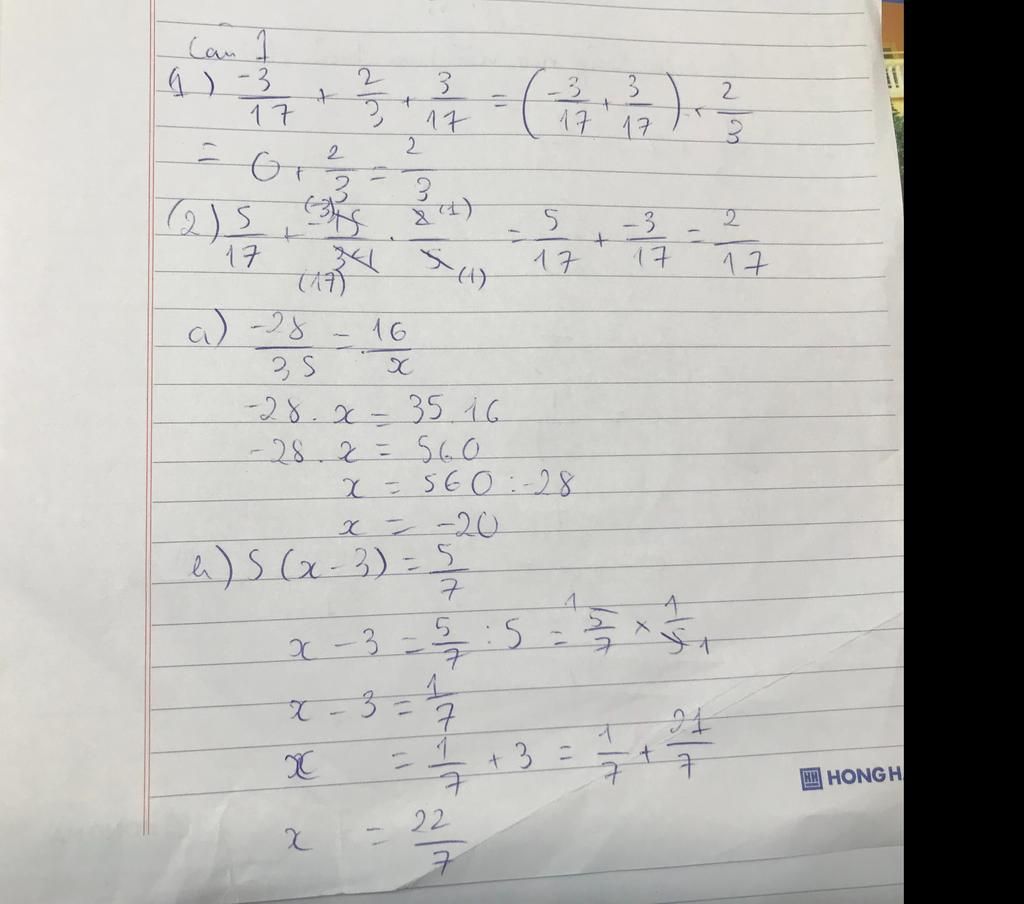 Câu 1
1) -3/17 + 2/3 + 3/17 = (-3/17 + 3/17) + 2/3
= 0 + 2/3 = 2/3
(2) 5/17 + -15/34 (-3) (17) . 2/5 (1) (1) = 5/17 + -3/17 = 2/17
a) -28/35 = 16/x
-28 . x = 35.16
-28 . x = 560
x = 560 : -28
x = -20
b) 5 (x - 3) = 5/7
x - 3 = 5/7 : 5 = 1 5/7 × 1/5 1
x - 3 = 1/7
x = 1/7 + 3 = 1/7 + 21/7
x = 22/7
HONG H